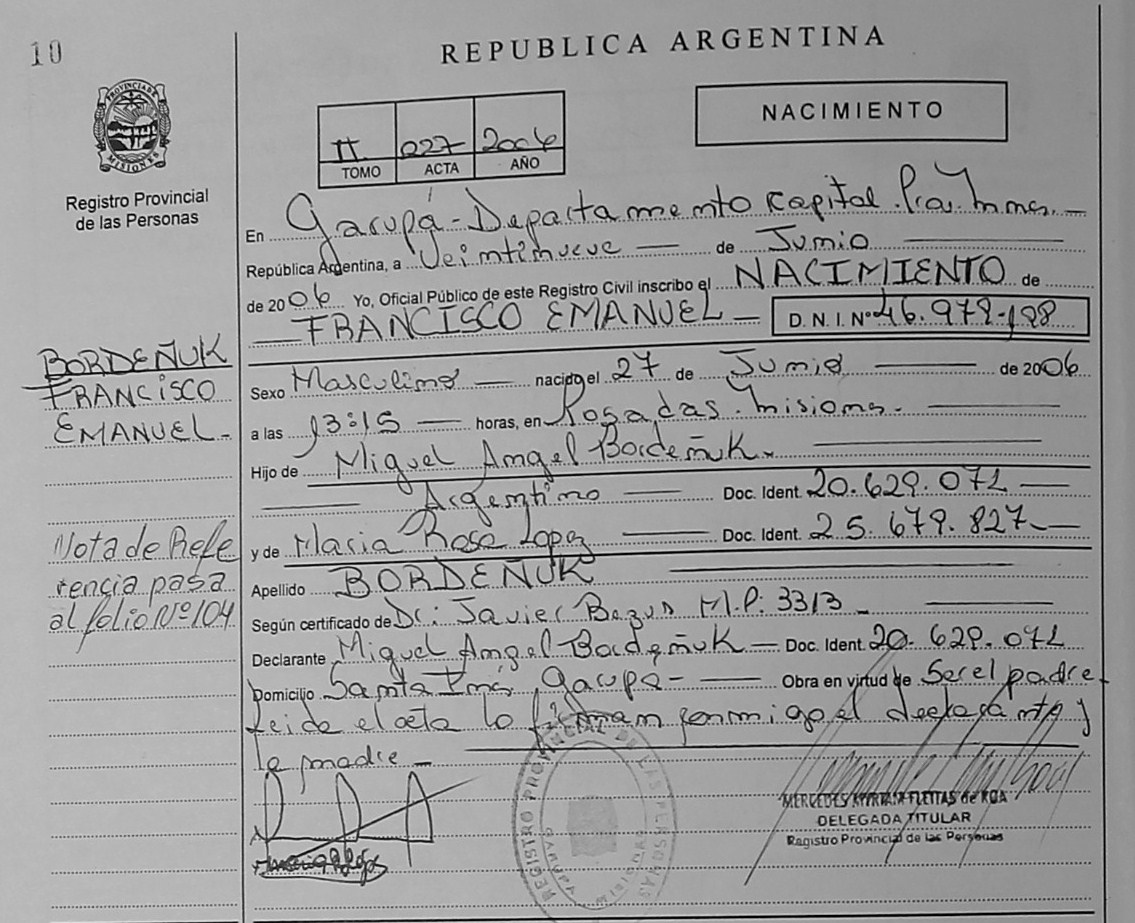 10
REPUBLICA ARGENTINA
PROVINCIA DE MISIONES
Registro Provincial
de las Personas
II. 027 2006
TOMO ACTA AÑO
NACIMIENTO
En Garupá - Departamento Capital.
República Argentina, a Veintinueve de Junio
de 2006 Yo, Oficial Público de este Registro Civil inscribo el NACIMIENTO de
FRANCISCO EMANUEL D. N. I. Nº 46.978-198
BORDEÑUK
FRANCISCO
EMANUEL -
Sexo Masculino nacido el 27 de Junio de 2006
a las 13:15 horas, en Posadas. Misiones.
Hijo de Miguel Angel Bordeñuk.
Argentino Doc. Ident. 20.629.071
y de Maria Rosa Lopez Doc. Ident. 25.679.827
Nota de Refe
rencia pasa
al folio Nº 104
Apellido BORDEÑUK
Según certificado de Dr: Javier M.P: 3313
Declarante Miguel Angel Bordeñuk Doc. Ident. 20.629.071
Domicilio Santa Inés, Garupa - Obra en virtud de Ser el padre
leida el acta lo firman conmigo el declarante y
la madre
MERCEDES MYRIAM FLEITAS de ROA
DELEGADA TITULAR
Registro Provincial de las Personas
REGISTRO PROVINCIAL DE LAS PERSONAS
GARUPA MISIONES